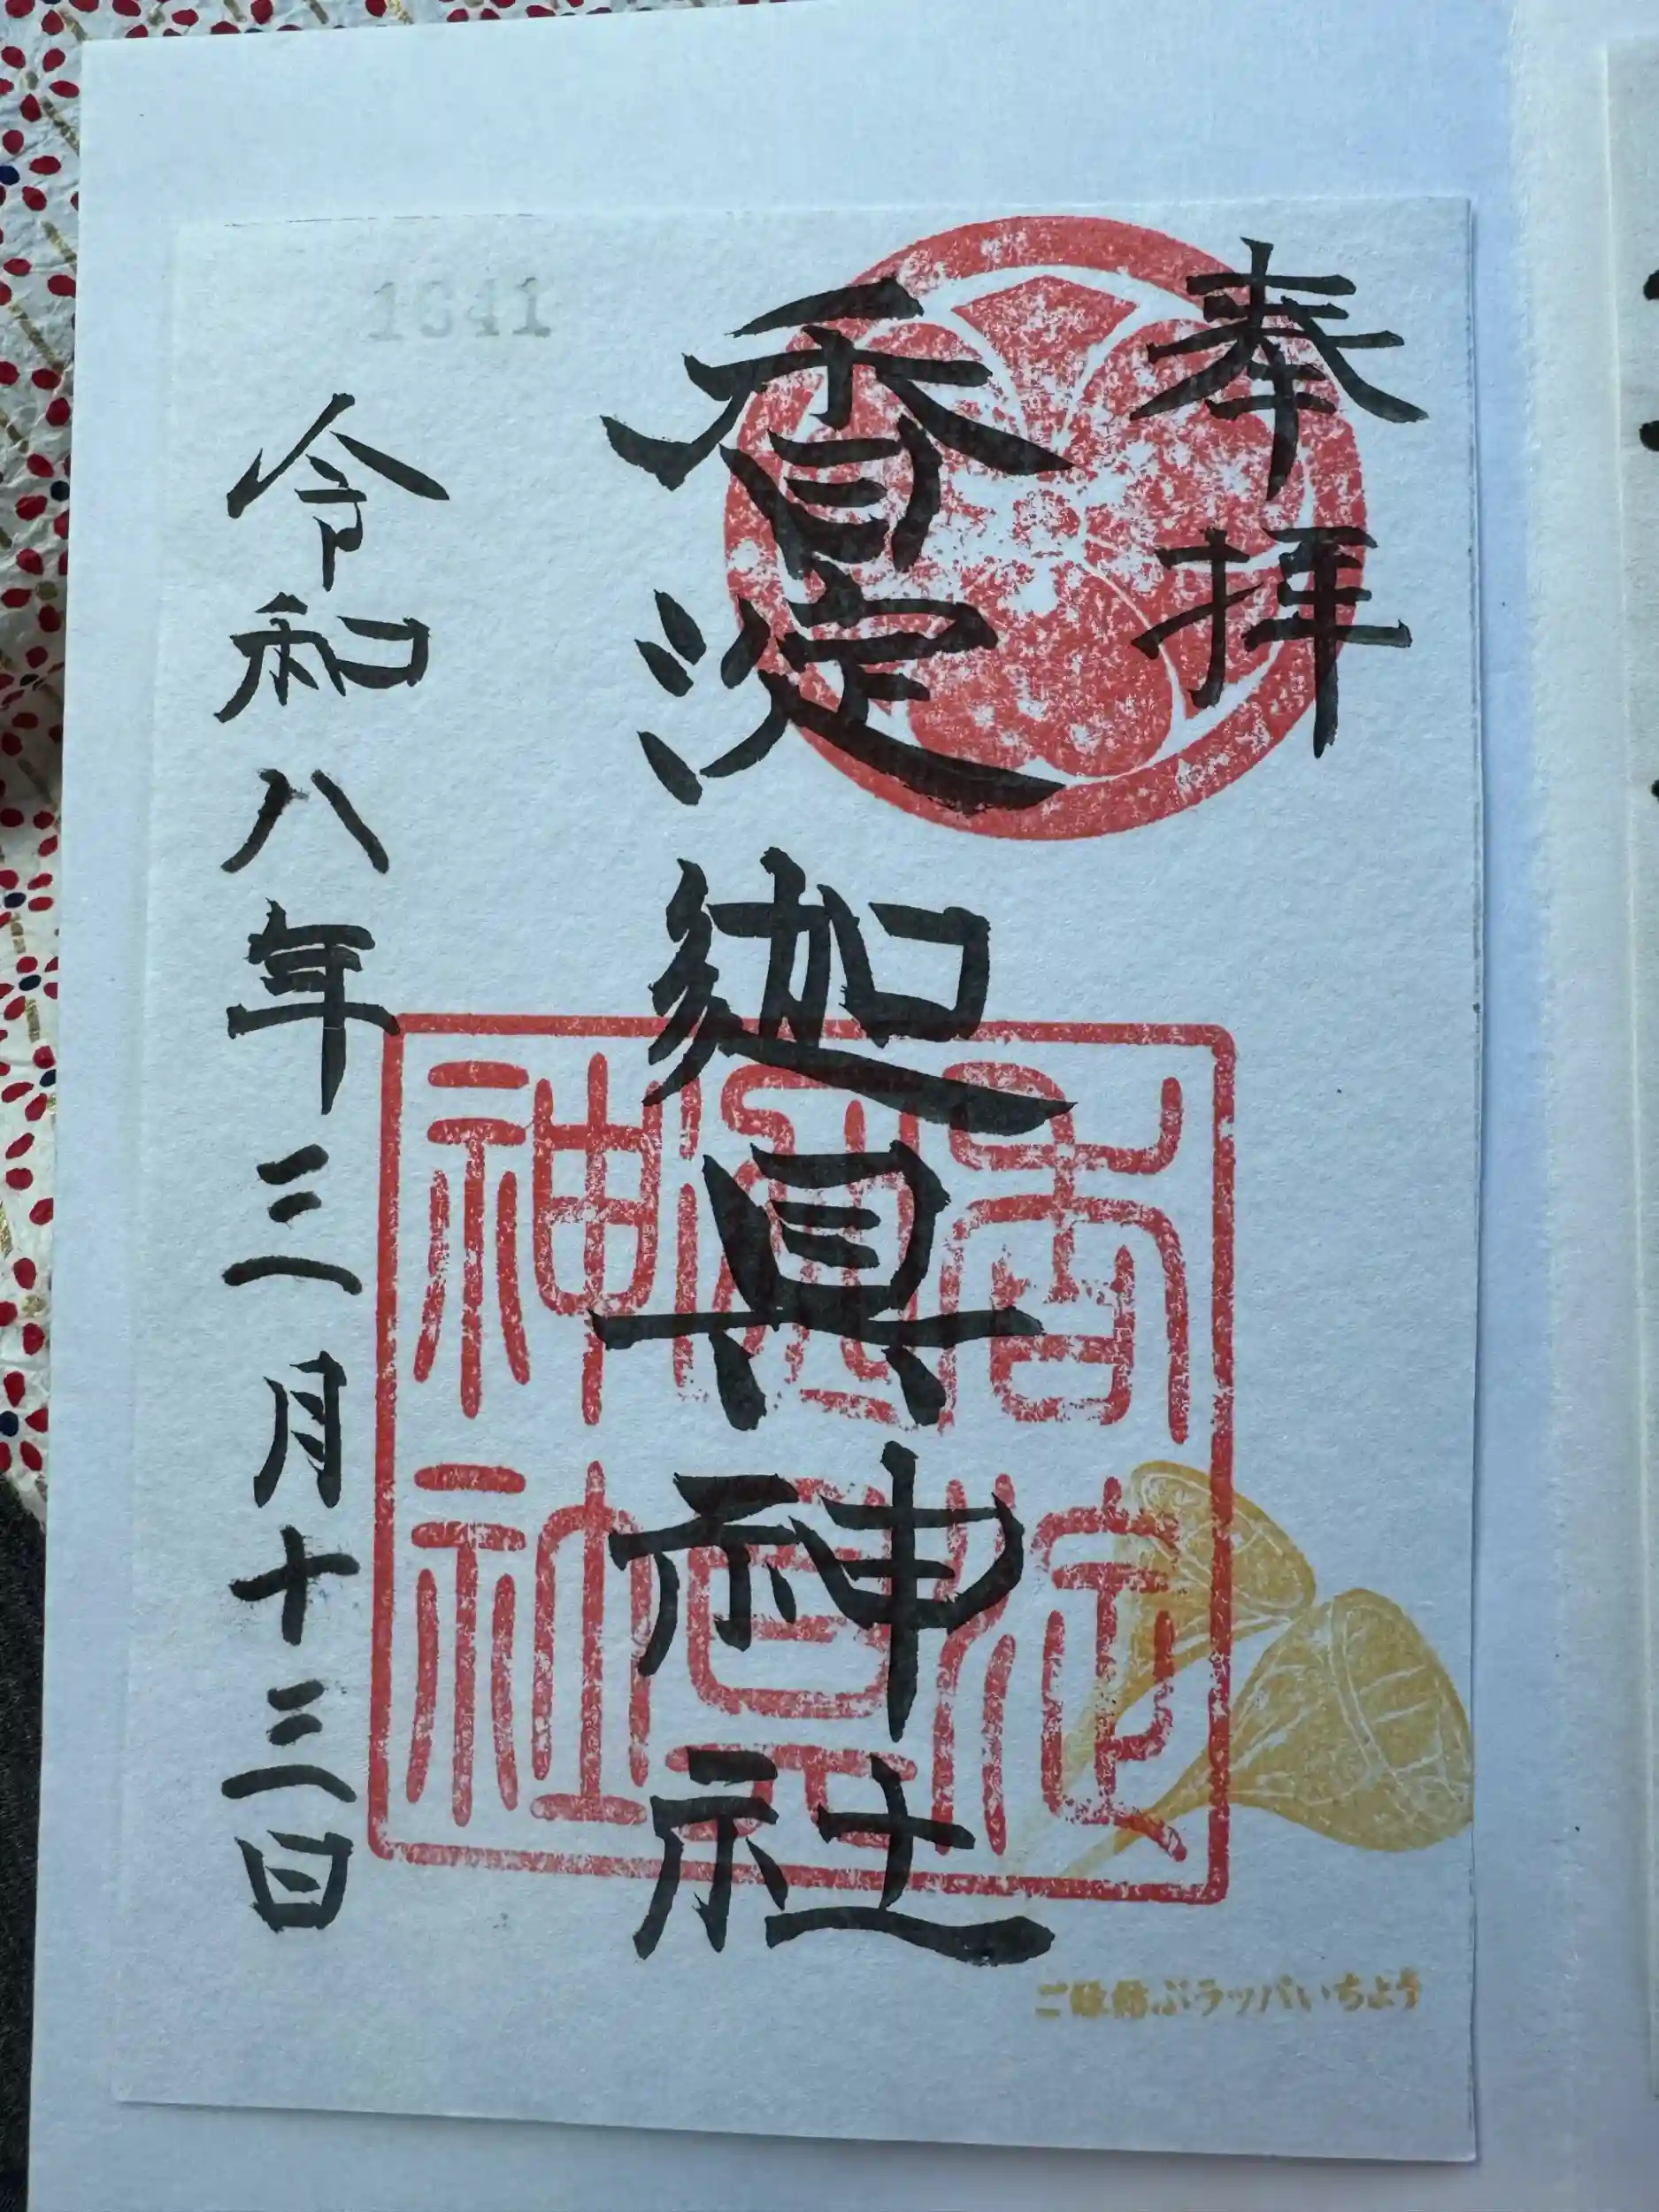 奉拝
香淀迦具神社
令和八年三月十三日
香淀
迦具
神社
ご縁結ぶラッパいちょう